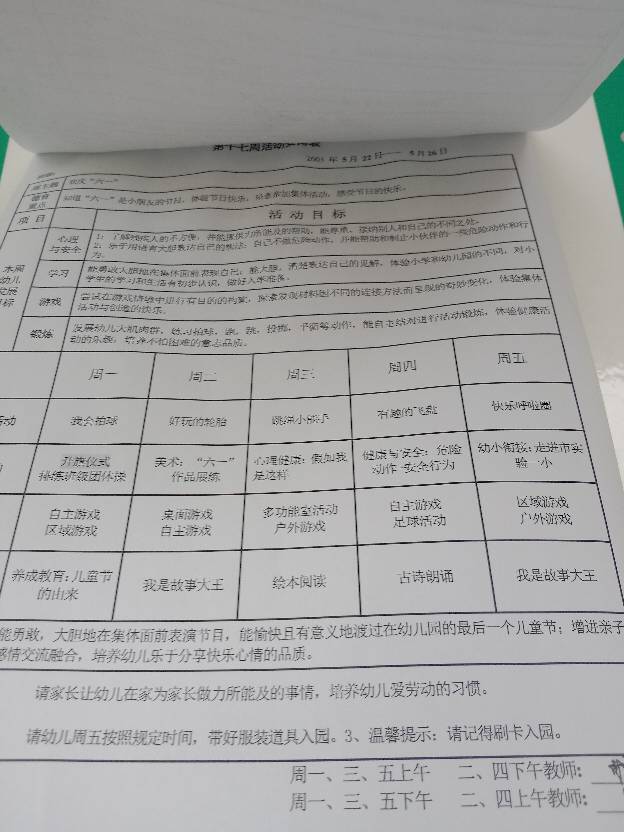 第十七周活动安排表
年 5 月 22 日—— 5 月 26 日
欢庆“六一”
知道“六一”是小朋友的节日，体验节日快乐，乐意参加集体活动，感受节日的快乐。
项 目 活 动 目 标
心理
与安全
1：了解残疾人的不方便，并能提供力所能及的帮助，能尊重、接纳别人和自己的不同之处。
2：乐于用语言大胆表达自己的想法：自己不做危险动作，并能帮助和制止小伙伴的一些危险动作和行
为。
学习
能勇敢大胆地在集体面前表现自己，能大胆、清楚表达自己的见解，体验小学和幼儿园的不同，对小
学生的学习和生活有初步认识，做好入学准备。
游戏
尝试在游戏情境中进行有目的的构案，探索发现材料因不同的连接方法而呈现的奇妙变化，体验集体
活动与创造的快乐。
锻炼
发展幼儿大肌肉群，练习拍球、跑、跳、投掷、平衡等动作，能自主结对进行活动锻炼，体验健康活
动的乐趣，培养不怕困难的意志品质。
周一 周二 周三 周四 周五
我会拍球 好玩的轮胎 跳绳小能手 有趣的飞盘 快乐呼啦圈
升旗仪式
排练班级团体操
美术：“六一”
作品展练
心理健康：假如我
是这样
健康与安全：危险
动作 安全行为
幼小衔接：走进市实
验一小
自主游戏
区域游戏
桌面游戏
自主游戏
多功能室活动
户外游戏
自主游戏
足球活动
区域游戏
户外游戏
养成教育：儿童节
的由来
我是故事大王 绘本阅读 古诗朗诵 我是故事大王
能勇敢，大胆地在集体面前表演节目，能愉快且有意义地渡过在幼儿园的最后一个儿童节；增进亲子
感情交流融合，培养幼儿乐于分享快乐心情的品质。
请家长让幼儿在家为家长做力所能及的事情，培养幼儿爱劳动的习惯。
请幼儿周五按照规定时间，带好服装道具入园。3、温馨提示：请记得刷卡入园。
周一、三、五上午 二、四下午教师：
周一、三、五下午 二、四上午教师：